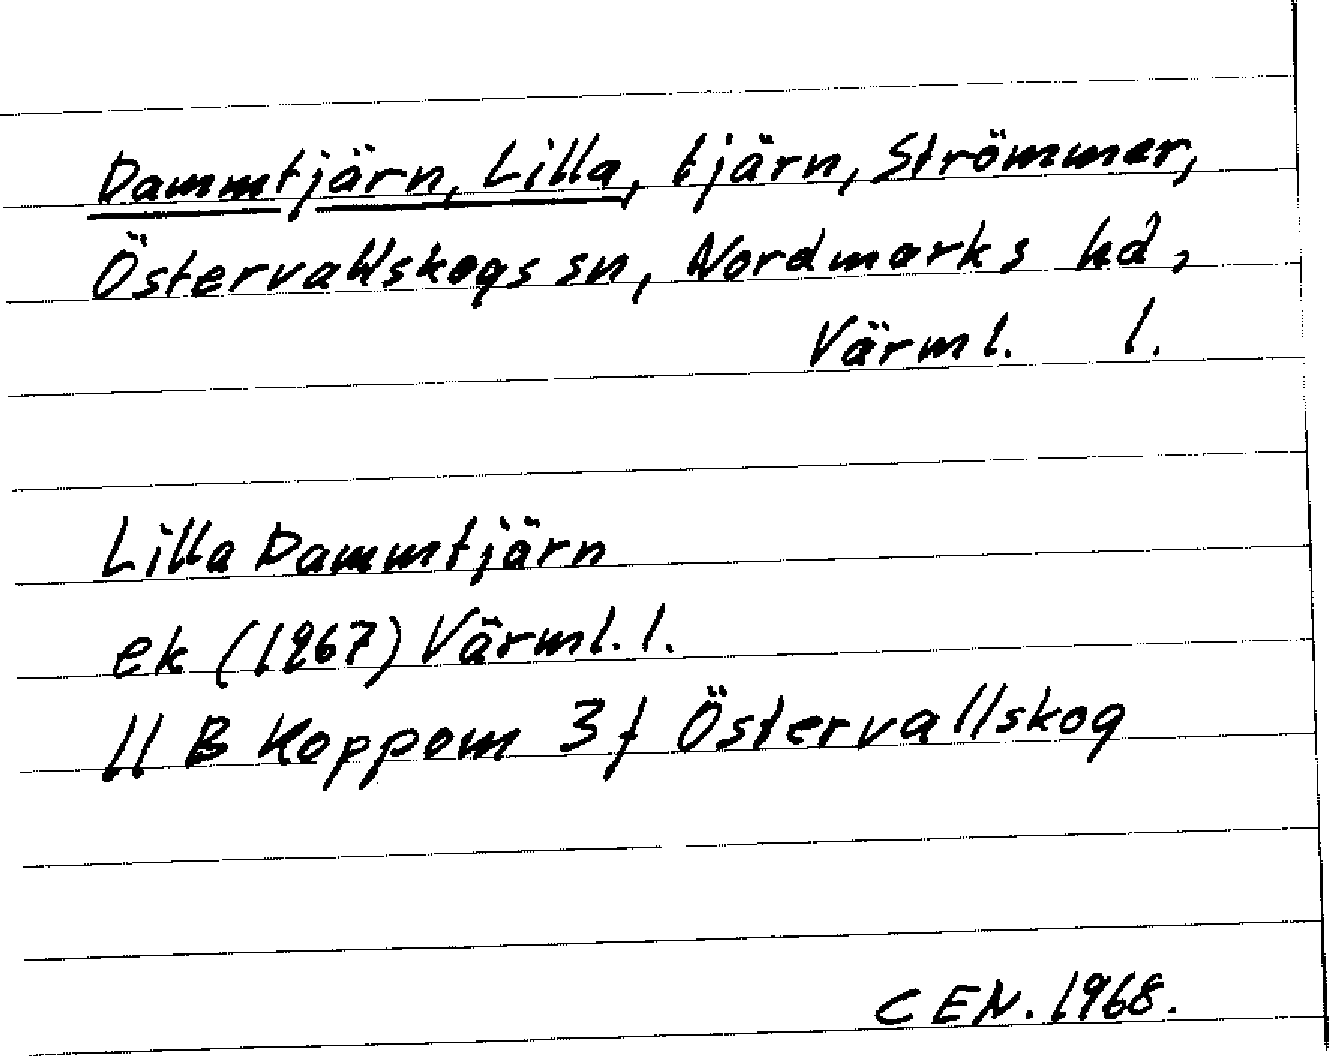 Dammtjärn, Lilla, tjärn, Strömmer,
Östervallskogs sn, Nordmarks hd,
Värml. l.
Lilla Dammtjärn
ek (1967) Värml. l.
11 B Koppom 3 f Östervallskog
CEN. 1968.